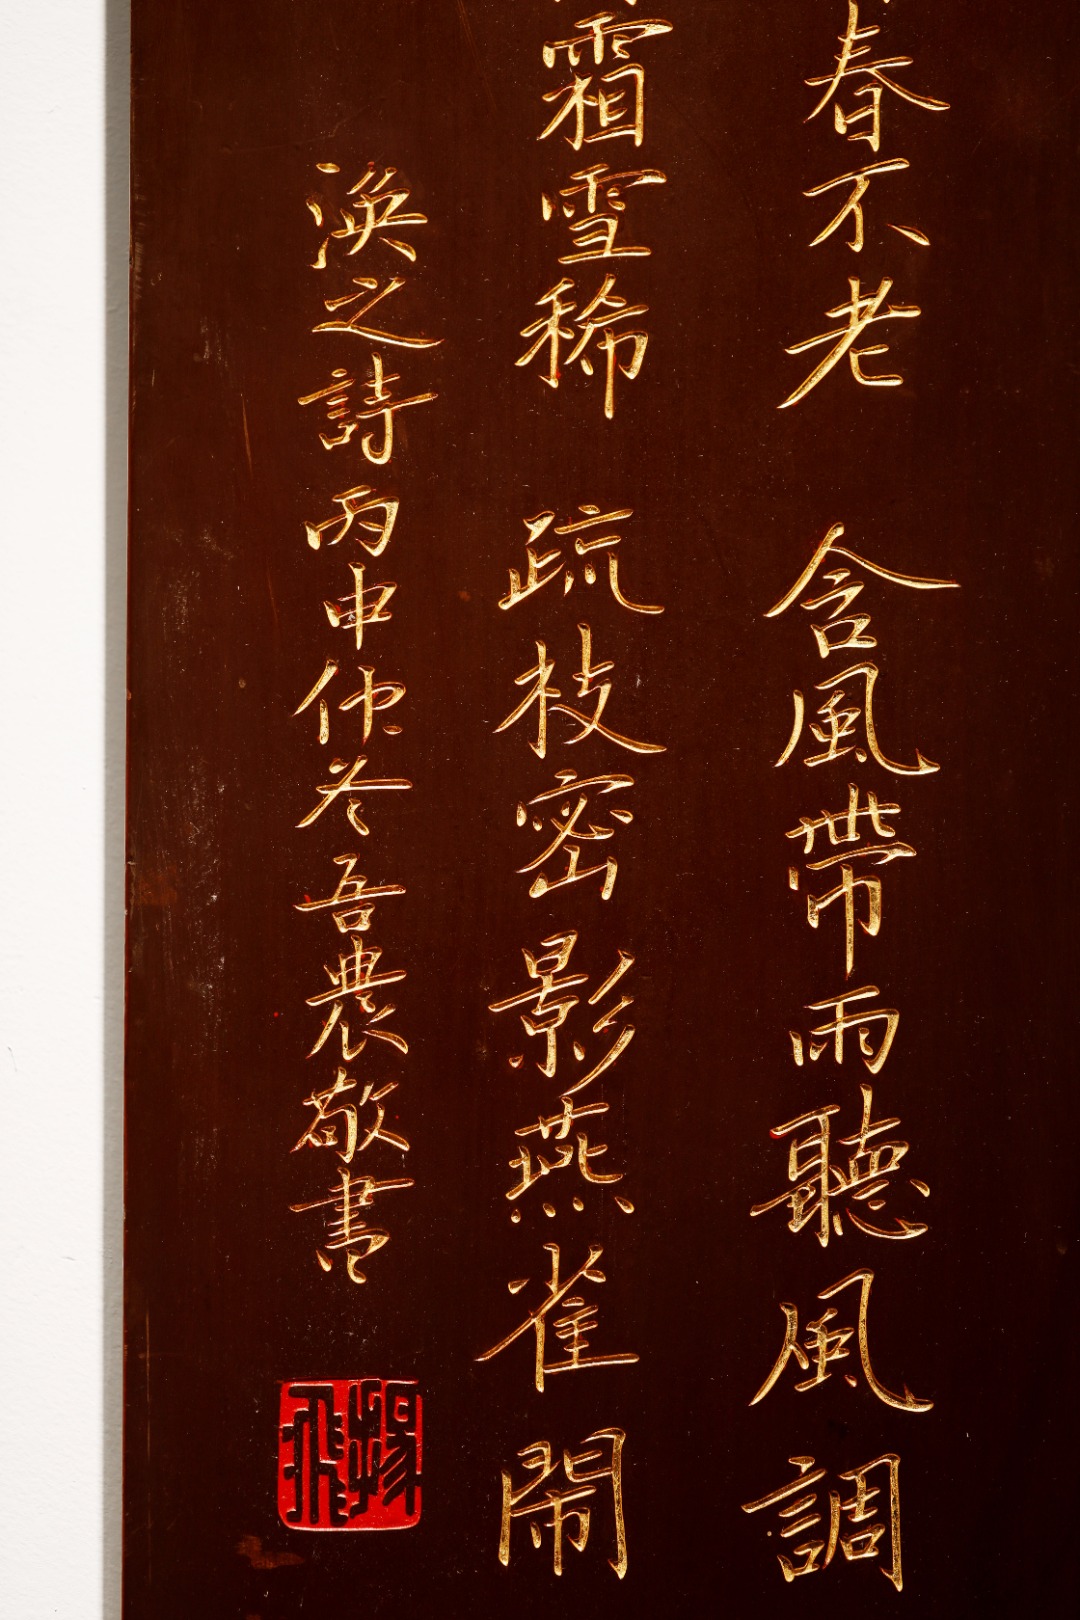 春不老 含風帶雨聽風調
霜雪稀 疏枝密影燕雀鬧
渙之詩丙申仲冬吾農敬書